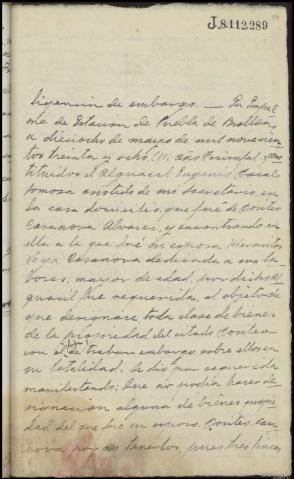 J.8112,289
ligencia de embargo. — En Empal
me de Estación de Puebla de Brollón,
a dieciocho de marzo de mil novecien
tos treinta y ocho, (II año Triunfal), cons
tituidos el Alguacil Eugenio Casal
Somoza asistido de mi Secretario, en
la casa domicilio, que fué de Conteo
Casanova Alvarez, y encontrando en
ella a la que fué su esposa
Casanova dedicada a sus la
bores, mayor de edad, por dicho Al
guacil fué requerida, al objeto de
que designare toda clase de bienes
de la propiedad del citado
con el fin de trabar embargo sobre ellos en
su totalidad, se dió por requerida
manifestando: Que no podía hacer de
signación alguna de bienes propie
dad del que fué su esposo, Casa
nova, por no tenerlos, pues tres fincas